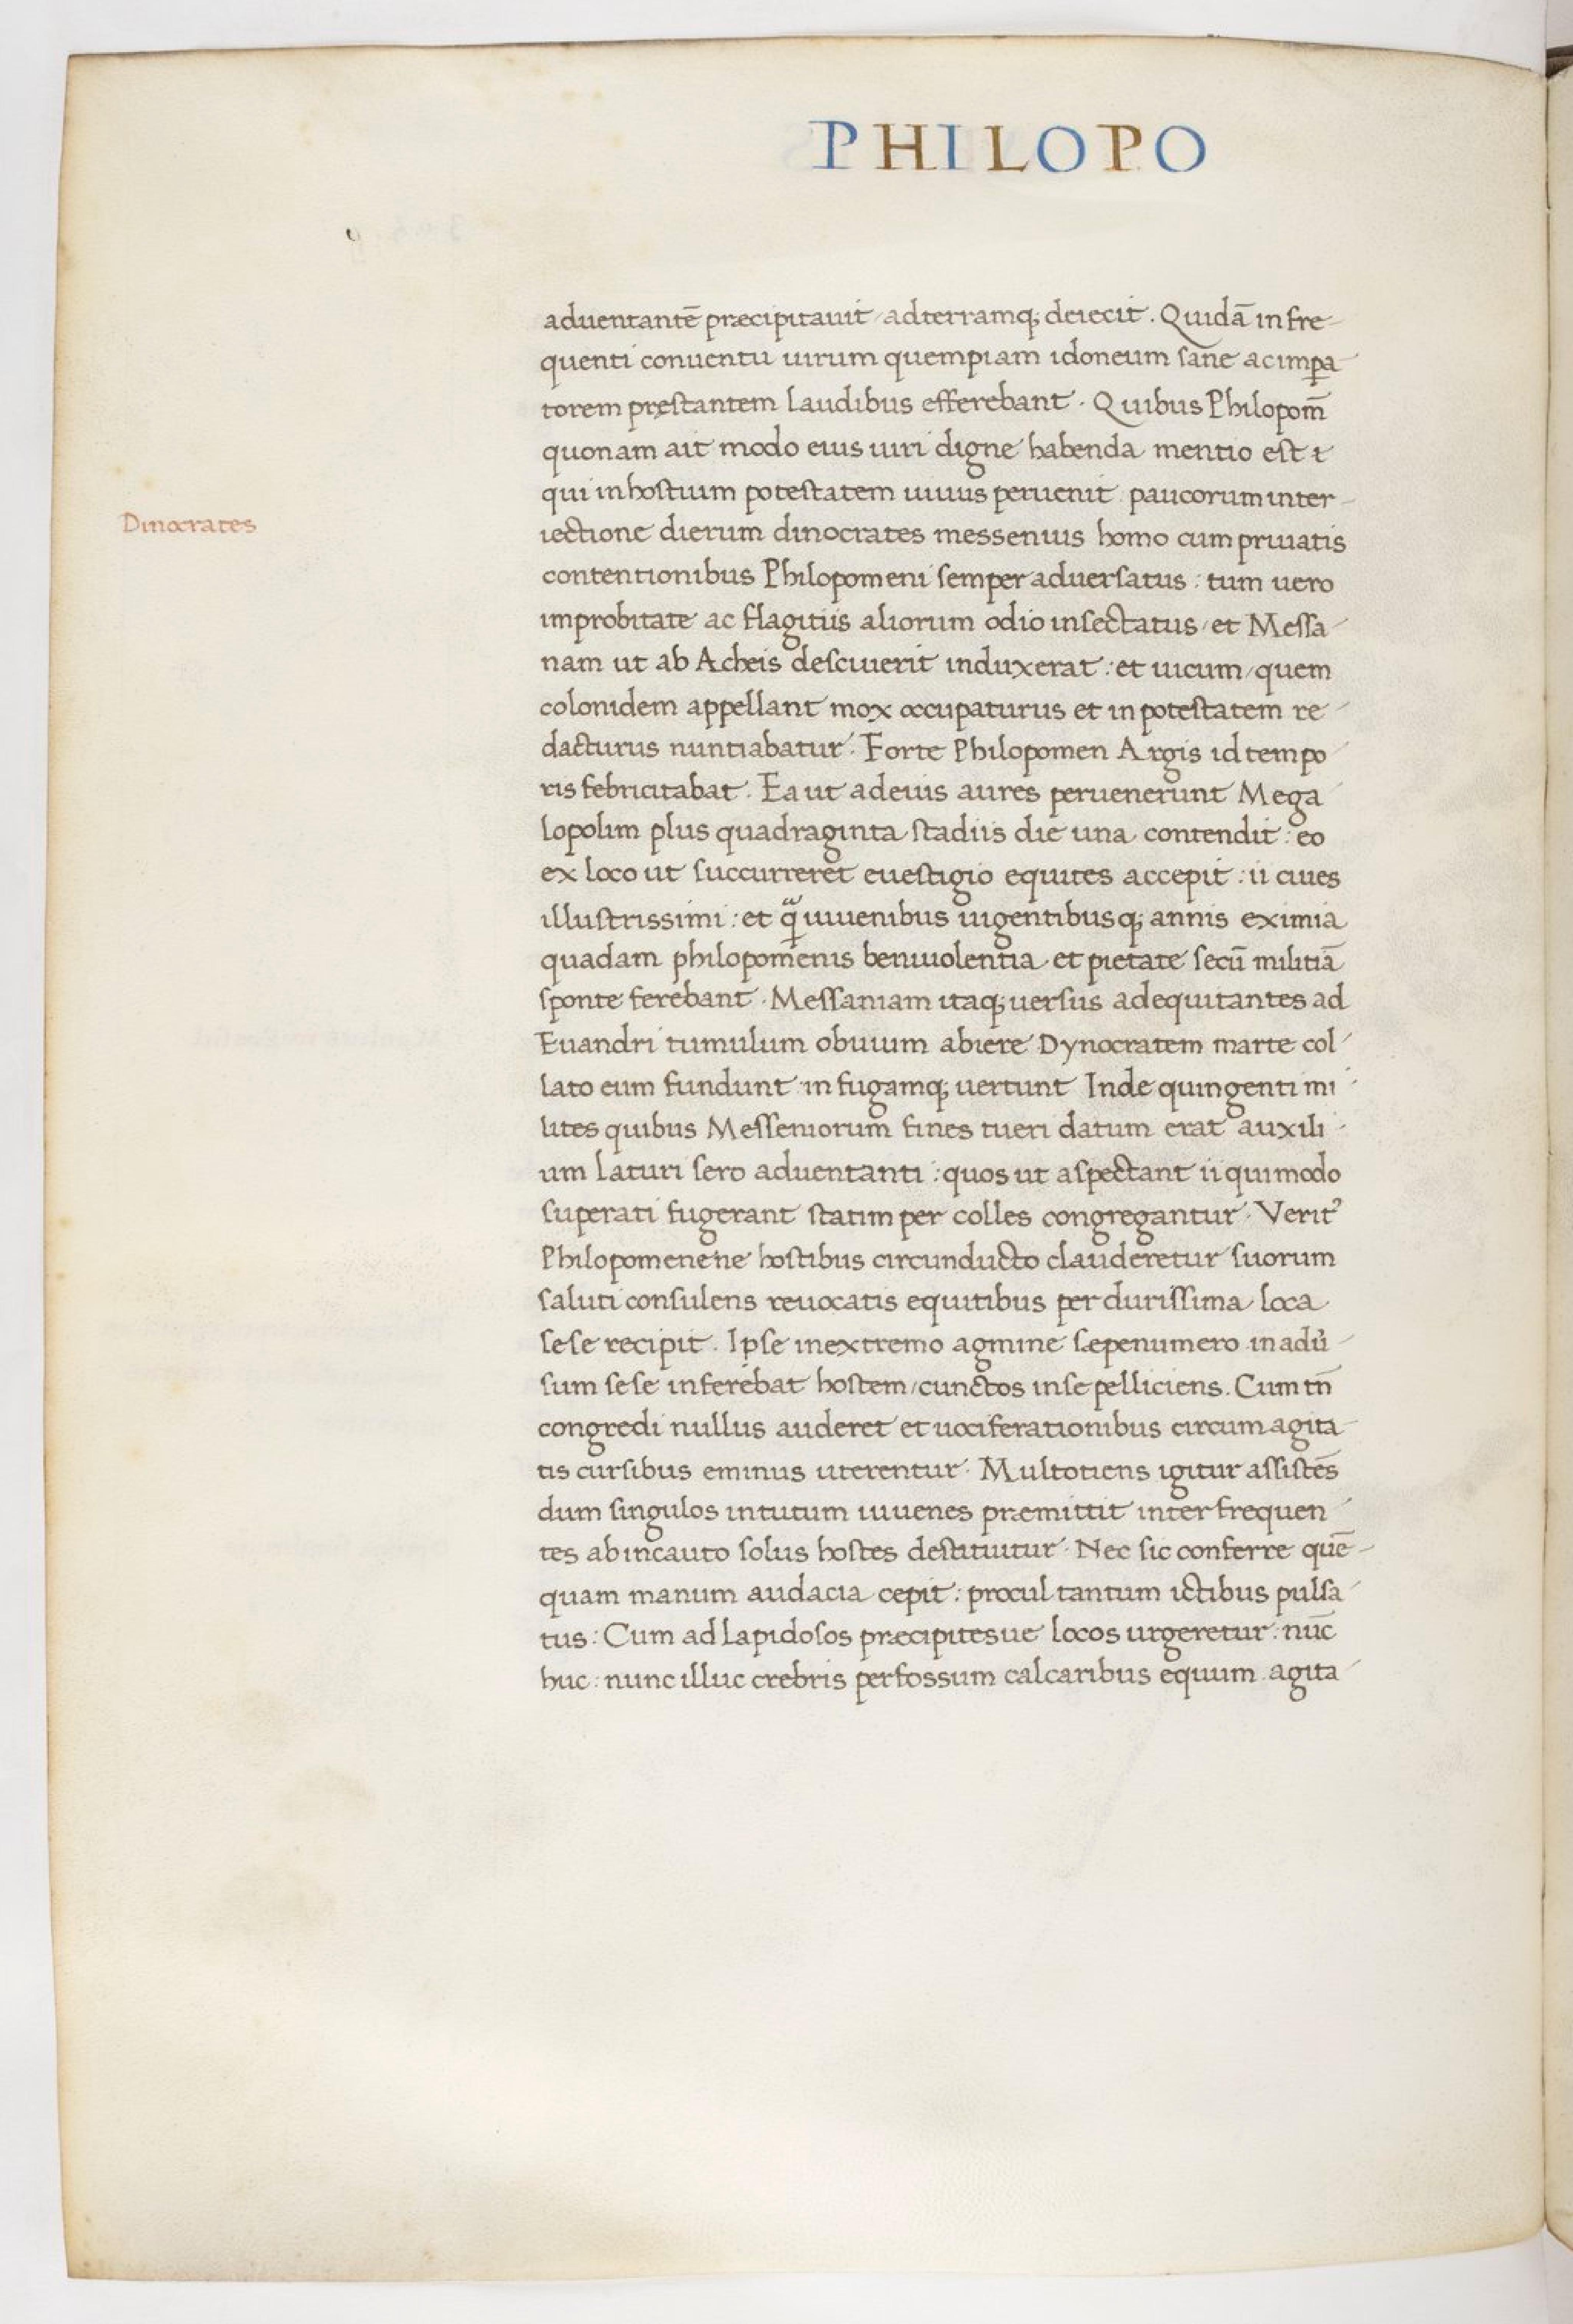 PHILOPO
aduentantē præcipitauit / adterramq; deiecit . Quidā infre-
quenti conuentu uirum quempiam idoneum sane acimꝑa-
torem pręstantem laudibus efferebant . Quibus Philopom̄
quonam ait modo eius uiri digne habenda mentio est
qui inhostium potestatem uiuus peruenit . paucoruminter-
Dinocrates
iectione dierum dinocrates messenius homo cum priuatis
contentionibus Philopomeni semper aduersatus : tum uero
improbitate ac flagitiis aliorum odio insectatus / et Messa-
nam ut ab Acheis desciuerit induxerat : et uicum / quem
colonidem appellant mox occupaturus et in potestatem re-
dacturus nuntiabatur . Forte Philopomen Argis id tempo-
ris febricitabat . Ea ut adeius aures peruenerunt Mega-
lopolim plus quadraginta stadiis die una contendit : eo
ex loco ut succurreret euestigio equites accepit : ii ciues
illustrissimi : et iuuenibus uigentibusq; annis eximia
quadam philopomenis beniuolentia et pietate secū militiā
sponte ferebant . Messaniam itaq; uersus adequitantes ad
Euandri tumulum obuium abiere Dynocratem marte col-
lato eum fundunt in fugamq; uertunt Inde quingenti mi-
lites quibus Messeniorum fines tueri datum erat auxili-
um laturi sero aduentanti : quos ut aspectant ii qui modo
superati fugerant statim per colles congregantur . Verit᾽
Philopomene ne hostibus circunducto clauderetur suorum
saluti consulens reuocatis equitibus per durissima loca
sese recipit . Ipse inextremo agmine sæpenumero inadū-
sum sese inferebat hostem / cunctos inse pelliciens . Cum tn̄
congredi nullus auderet et uociferationibus circumagita-
tis cursibus eminus uterentur . Multotiens igitur assistēs
dum singulos intutum iuuenes præmittit inter frequen-
tes abincauto solus hostes destituitur . Nec sic conferre quē-
quam manum audacia cepit : procul tantum ictibus pulsa-
tus : Cum ad lapidosos præcipitesue locos urgeretur : nūc
huc : nunc illuc crebris perfossum calcaribus equum agita-